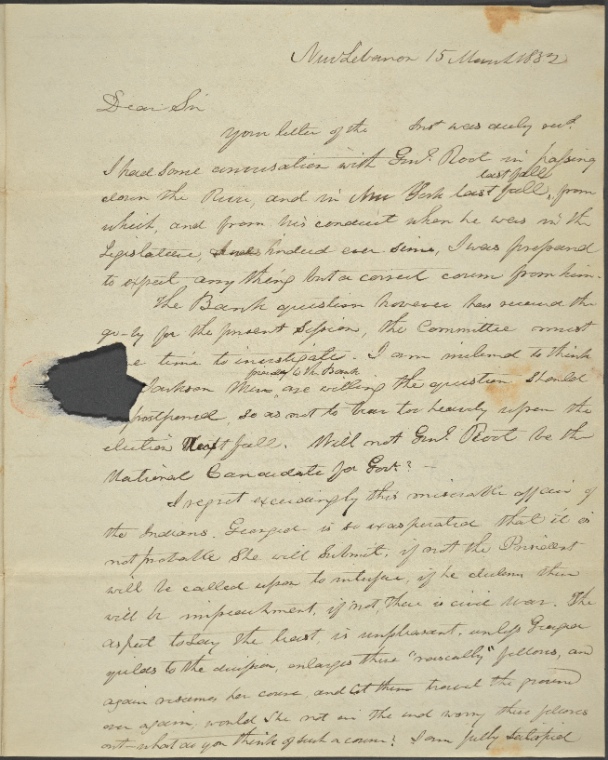 New Lebanon 15 March 1832
Dear Sir
Your letter of the Inst was duly recd.
I had some conversation with Genl. Root in passing
last fall
down the River, and in New York last fall, from
which, and from his conduct when he was in the
Legislature, & indeed ever since, I was prepared
to expect any thing but a correct course from him.
The Bank question however has received the
go-by for the present Session, the Committee must
time to investigate. I am inclined to think
friendly to the Bank
Jackson Men, are willing the question should
postponed, so as not to bear too heavily upon the
election Next fall. Will not Genl. Root be the
National Candidate for Govr? —
I regret exceedingly this miserable affair of
the Indians. Georgia is so exasperated that it is
not probable She will Submit. if not the President
will be called upon to interfere, if he declines then
will be impeachment, if not, there is civil war. The
aspect to say the least, is unpleasant. unless Georgia
yields to the decision, enlarges these "rascally" fellows, and
again resumes her course and let them travel the ground
over again, would She not in the end worry these fellows
out — what do you think of such a course? I am fully satisfied